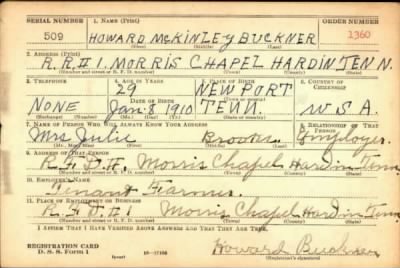 SERIAL NUMBER 1. NAME (Print) ORDER NUMBER
509 HOWARD McKINLEY BUCKNER 1360
(First) (Middle) (Last)
2. ADDRESS (Print)
R.R.#1. MORRIS CHAPEL HARDIN TENN.
(Number and street or R. F. D. number) (Town) (County) (State)
3. TELEPHONE 4. AGE IN YEARS 5. PLACE OF BIRTH 6. COUNTRY OF CITIZENSHIP
29 NEWPORT
DATE OF BIRTH
NONE Jan. 8 1910 TENN. U.S.A.
7. NAME OF PERSON WHO WILL ALWAYS KNOW YOUR ADDRESS 8. RELATIONSHIP OF THAT PERSON
Mrs Julie Employer
9. ADDRESS OF THAT PERSON
Morris Chapel Hardin Tenn.
(Number and street or R. F. D. number) (Town) (County) (State)
10. EMPLOYER'S NAME
Tenant Farmer
11. PLACE OF EMPLOYMENT OR BUSINESS
R.F.D.#1 Morris Chapel Hardin Tenn
(Number and street or R. F. D. number) (Town) (County) (State)
I AFFIRM THAT I HAVE VERIFIED ABOVE ANSWERS AND THAT THEY ARE TRUE.
REGISTRATION CARD Howard Buckner
D. S. S. Form 1 (over) (Registrant's signature)